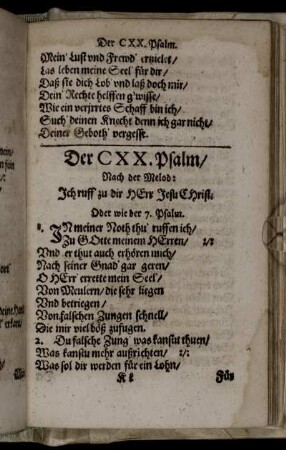 Der CXX. Psalm.
Mein' Lust vnd Frewd' ertzielet/
Las leben meine Seel' für dir/
Daß sie dich Lob' vnd laß doch mir/
Dein' Rechte helffen g'wisse/
Wie ein verjrrtes Schaff bin ich/
Such' deinen Knecht denn ich gar nicht/
Deiner Geboth' vergesse.
Der CXX. Psalm/
Nach der Melod:
Ich ruff zu dir HErr Jesu Christ.
Oder wie der 7. Psalm.
1. IN meiner Noth thu' ruffen ich/
Zu GOtte meinem HErren/ 2/:
Vnd er thut auch erhören mich/
Nach seiner Gnad' gar geren/
O HErr errette mein Seel'/
Von Meulern/ die sehr liegen
Vnd betriegen/
Von falschen Zungen schnell/
Die mir viel böß zufugen.
2. Du falsche Zung' was kanstu thuen/
Was kanstu mehr außrichten/ 2/:
Was sol dir werden für ein Lohn/
K k Für